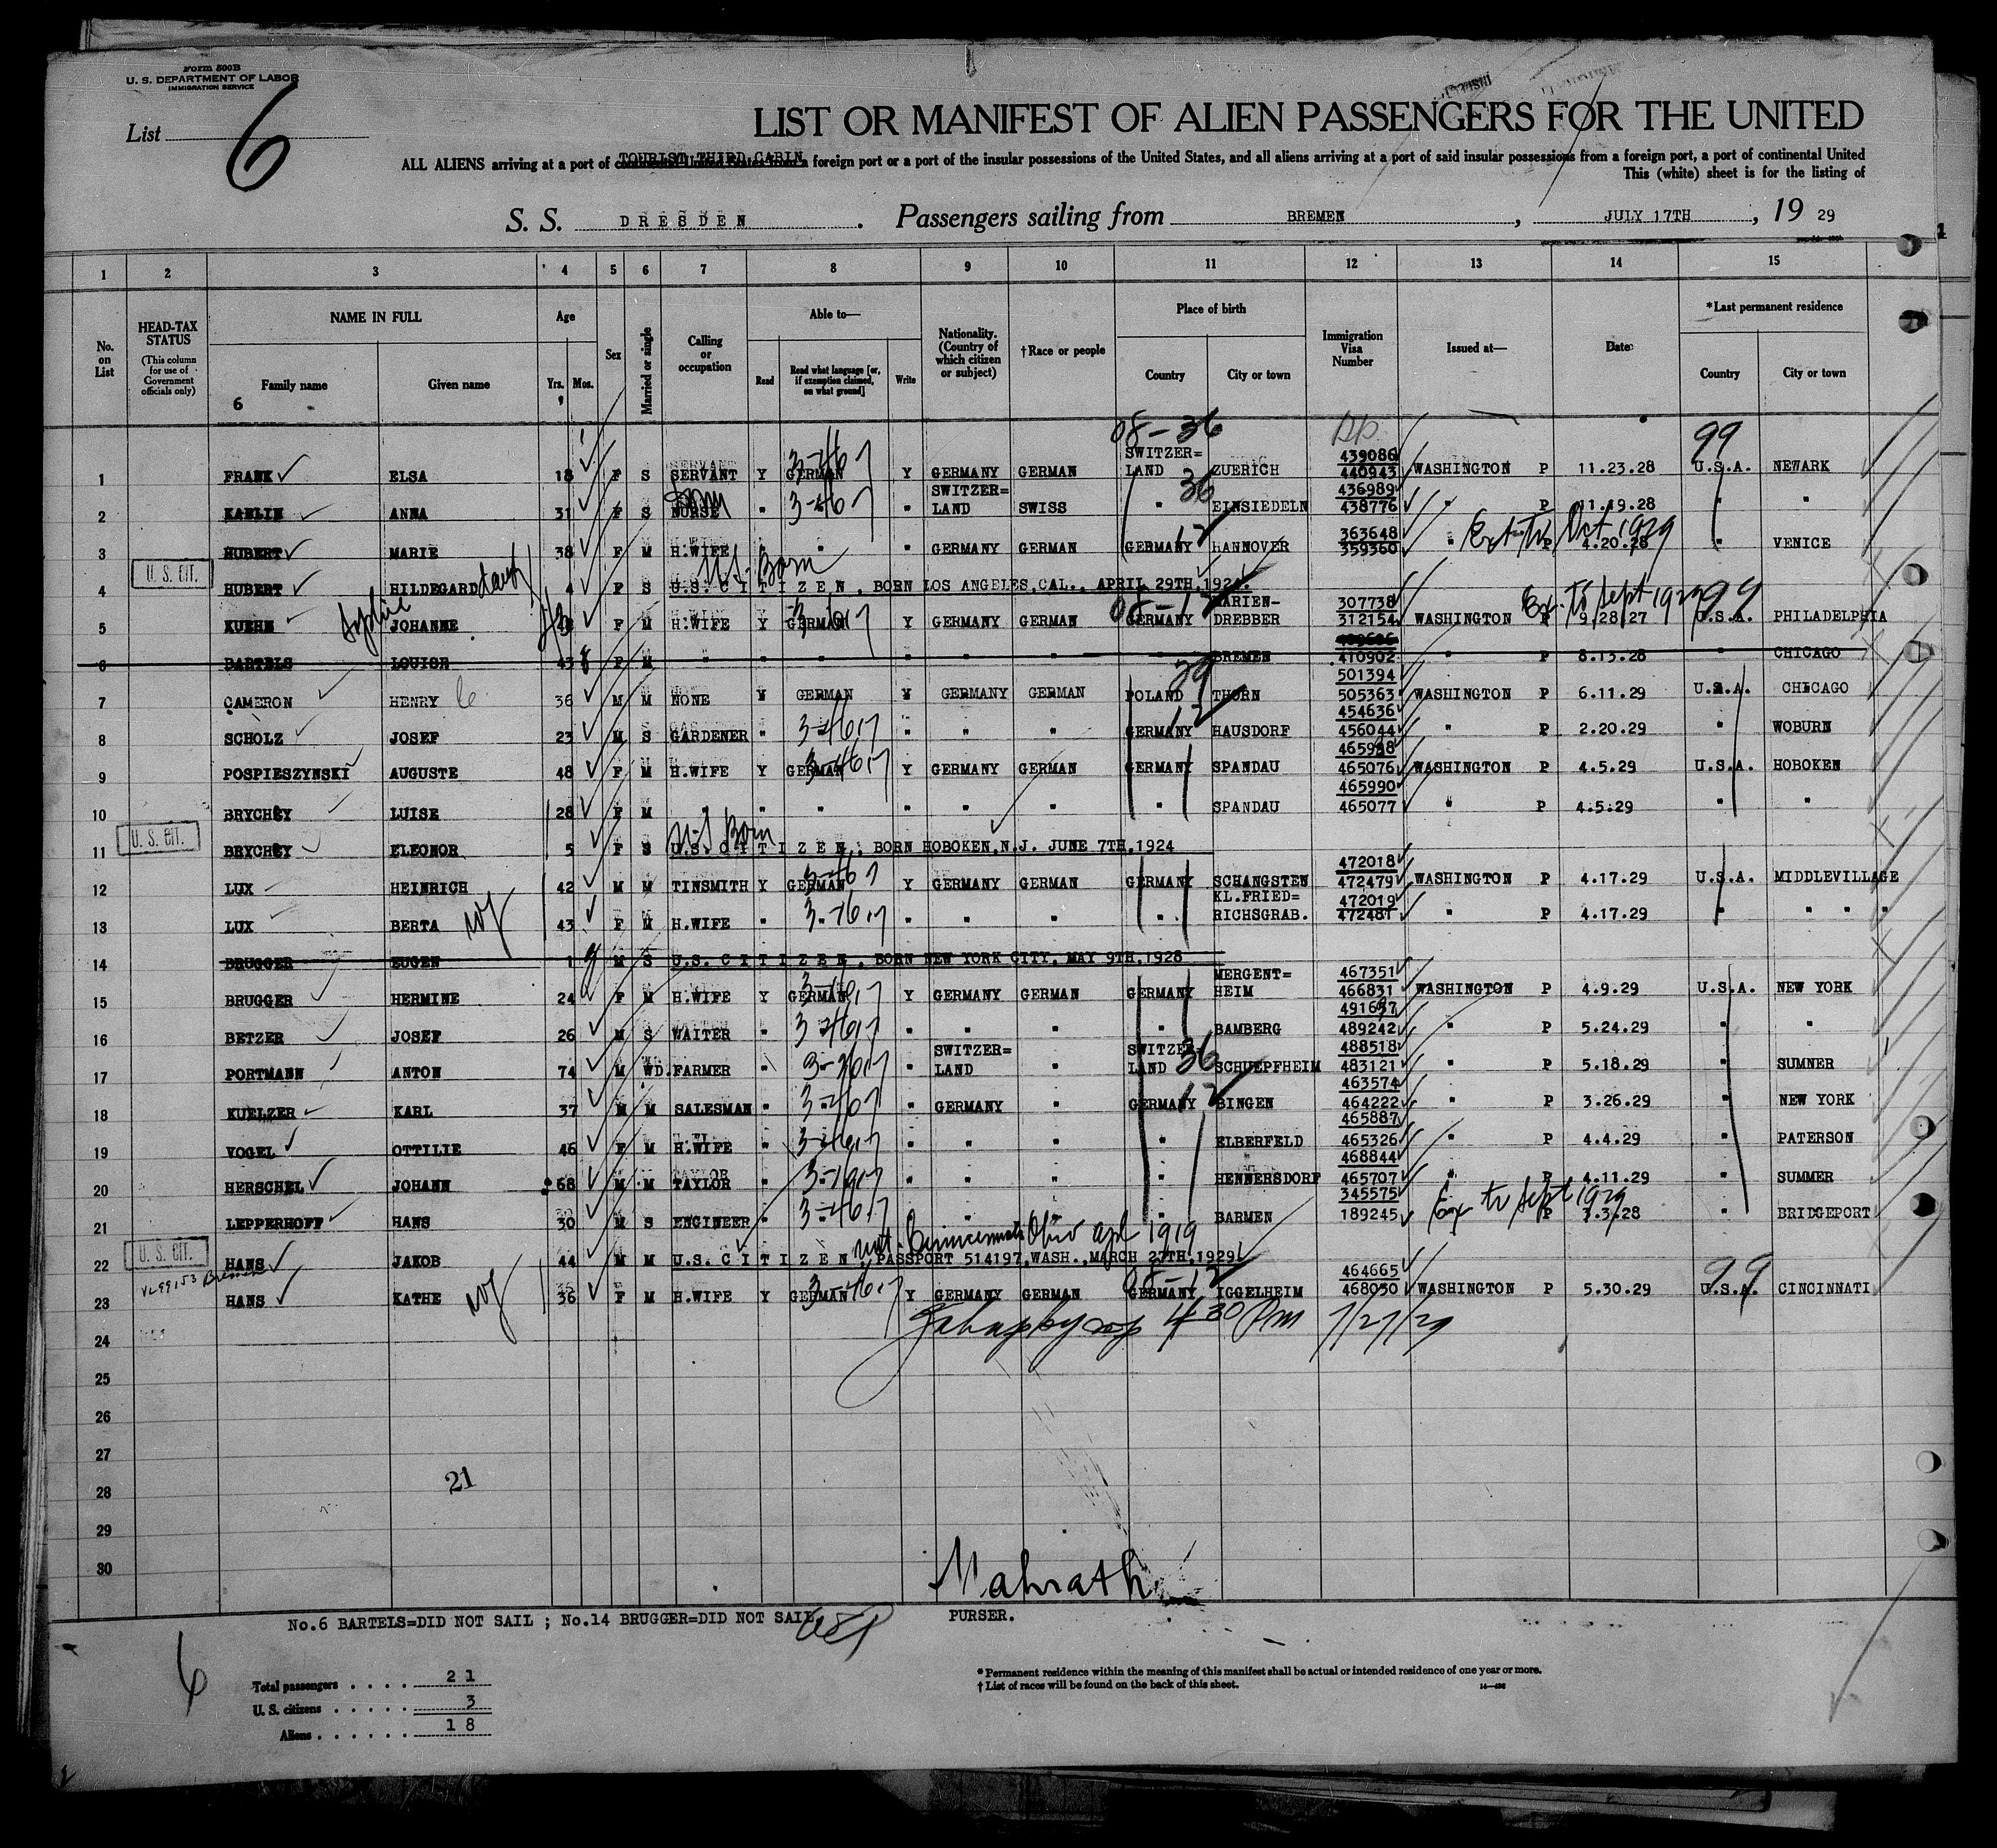 Form 500B
U. S. DEPARTMENT OF LABOR
IMMIGRATION SERVICE
List 6
LIST OR MANIFEST OF ALIEN PASSENGERS FOR THE UNITED
TOURIST THIRD CABIN
ALL ALIENS arriving at a port of continental United States from a foreign port or a port of the insular possessions of the United States, and all aliens arriving at a port of said insular possessions from a foreign port, a port of continental United
This (white) sheet is for the listing of
S. S. DRESDEN. Passengers sailing from BREMEN, JULY 17TH, 19 29
1 2 3 4 5 6 7 8 9 10 11 12 13 14 15
No. on List
HEAD-TAX STATUS (This column for use of Government officials only)
NAME IN FULL Family name Given name
6
Age Yrs. Mos.
Sex
Married or single
Calling or occupation
Able to— Read Read what language [or, if exemption claimed, on what ground] Write
Nationality. (Country of which citizen or subject)
†Race or people
Place of birth Country City or town
Immigration Visa Number
Issued at—
Date
*Last permanent residence Country City or town
08-36 99
SWITZER= 439086
1 FRANK ELSA 18 F S SERVANT Y GERMAN 3-467 Y GERMANY GERMAN LAND ZUERICH 440943 WASHINGTON P 11.23.28 U.S.A. NEWARK
SWITZER= 36 436989
2 KAELIN ANNA 31 F S NURSE " 3-467 " LAND SWISS " EINSIEDELN 438776 " P 11.19.28 " "
363648 Ext to Oct 1929
3 HUBERT MARIE 38 F M H.WIFE " " " GERMANY GERMAN GERMANY 12 HANNOVER 359360 " P 4.20.28 " VENICE
U. S. CIT. U.S. Born
4 HUBERT HILDEGARD F S U.S. CITIZEN, BORN LOS ANGELES, CAL., APRIL 29TH,
Sophie 08-12 MARIEN- 307738 Ex. to Sept 1929 99
5 KUEHN JOHANNE F M H.WIFE Y GERMAN Y GERMANY GERMAN GERMANY DREBBER 312154 WASHINGTON P 9.28.27 U.S.A. PHILADELPHIA
6 BARTELS LOUISE 43 F M " " " " " " " BREMEN 410902 " P 8.13.28 " CHICAGO
501394
7 CAMERON HENRY 36 M M NONE Y GERMAN Y GERMANY GERMAN POLAND THORN 505363 WASHINGTON P 6.11.29 U.S.A. CHICAGO
12 454636
8 SCHOLZ JOSEF 23 M S GARDENER " 3-467 " " " GERMANY HAUSDORF 456044 " P 2.20.29 " WOBURN
9 POSPIESZYNSKI AUGUSTE 48 F M H.WIFE Y GERMAN 3-467 Y GERMANY GERMAN GERMANY SPANDAU 465076 WASHINGTON P 4.5.29 U.S.A. HOBOKEN
465990
10 BRYCHEY LUISE 28 F M " " " " " " " SPANDAU 465077 " P 4.5.29 " "
U. S. CIT. U.S Born
11 BRYCHEY ELEONOR 5 F S U.S. CITIZEN, BORN HOBOKEN, N.J. JUNE 7TH, 1924
472018
12 LUX HEINRICH 42 M M TINSMITH Y GERMAN 3-467 Y GERMANY GERMAN GERMANY SCHANGSTEN 472479 WASHINGTON P 4.17.29 U.S.A. MIDDLEVILLAGE
KL.FRIED= 472019
13 LUX BERTA wf 43 F M H.WIFE " 3-467 " " " " RICHSGRAB. 472481 " P 4.17.29 " " " "
14 BRUGGER EUGEN 1 M S U.S. CITIZEN, BORN NEW YORK CITY, MAY 9TH, 1928
MERGENT= 467351
15 BRUGGER HERMINE 24 F M H.WIFE Y GERMAN 3-467 Y GERMANY GERMAN GERMANY HEIM 466831 WASHINGTON P 4.9.29 U.S.A. NEW YORK
16 BETZER JOSEF 26 M S WAITER " 3-467 " " " " BAMBERG 489242 " P 5.24.29 " "
SWITZER= SWITZER= 36 488518
17 PORTMANN ANTON 74 M WD. FARMER " 3-467 " LAND " LAND SCHUEPFHEIM 483121 " P 5.18.29 " SUMNER
12 463574
18 KUELZER KARL 37 M M SALESMAN " 3-467 " GERMANY " GERMANY BINGEN 464222 " P 3.26.29 " NEW YORK
465887
19 VOGEL OTTILIE 46 F M H.WIFE " 3-467 " " " " ELBERFELD 465326 " P 4.4.29 " PATERSON
468844
20 HERSCHEL JOHANN 68 M M TAYLOR " 3-467 " " " " HENNERSDORF 465707 " P 4.11.29 " SUMMER
345575 Ex to Sept 1929
21 LEPPERHOFF HANS 30 M S ENGINEER " 3-467 " " " " BARMEN 189245 P 3.3.28 " BRIDGEPORT
U. S. CIT. nat. Cincinnati Ohio Apl 1919
22 HANS JAKOB 44 M M U.S. CITIZEN, PASSPORT 514197, WASH., MARCH 27TH, 1929
08-12 464665 99
23 HANS KATHE wf 36 F M H.WIFE Y GERMAN 3-467 Y GERMANY GERMAN GERMANY IGGELHEIM 468050 WASHINGTON P 5.30.29 U.S.A. CINCINNATI
24 430 Pm 7/27/29
25
26
27
28 21
29
30
Mahrath
No.6 BARTELS=DID NOT SAIL ; No.14 BRUGGER=DID NOT SAIL PURSER.
6
Total passengers . . . . 21
U. S. citizens . . . . . 3
Aliens . . . . . . 18
* Permanent residence within the meaning of this manifest shall be actual or intended residence of one year or more.
† List of races will be found on the back of this sheet.